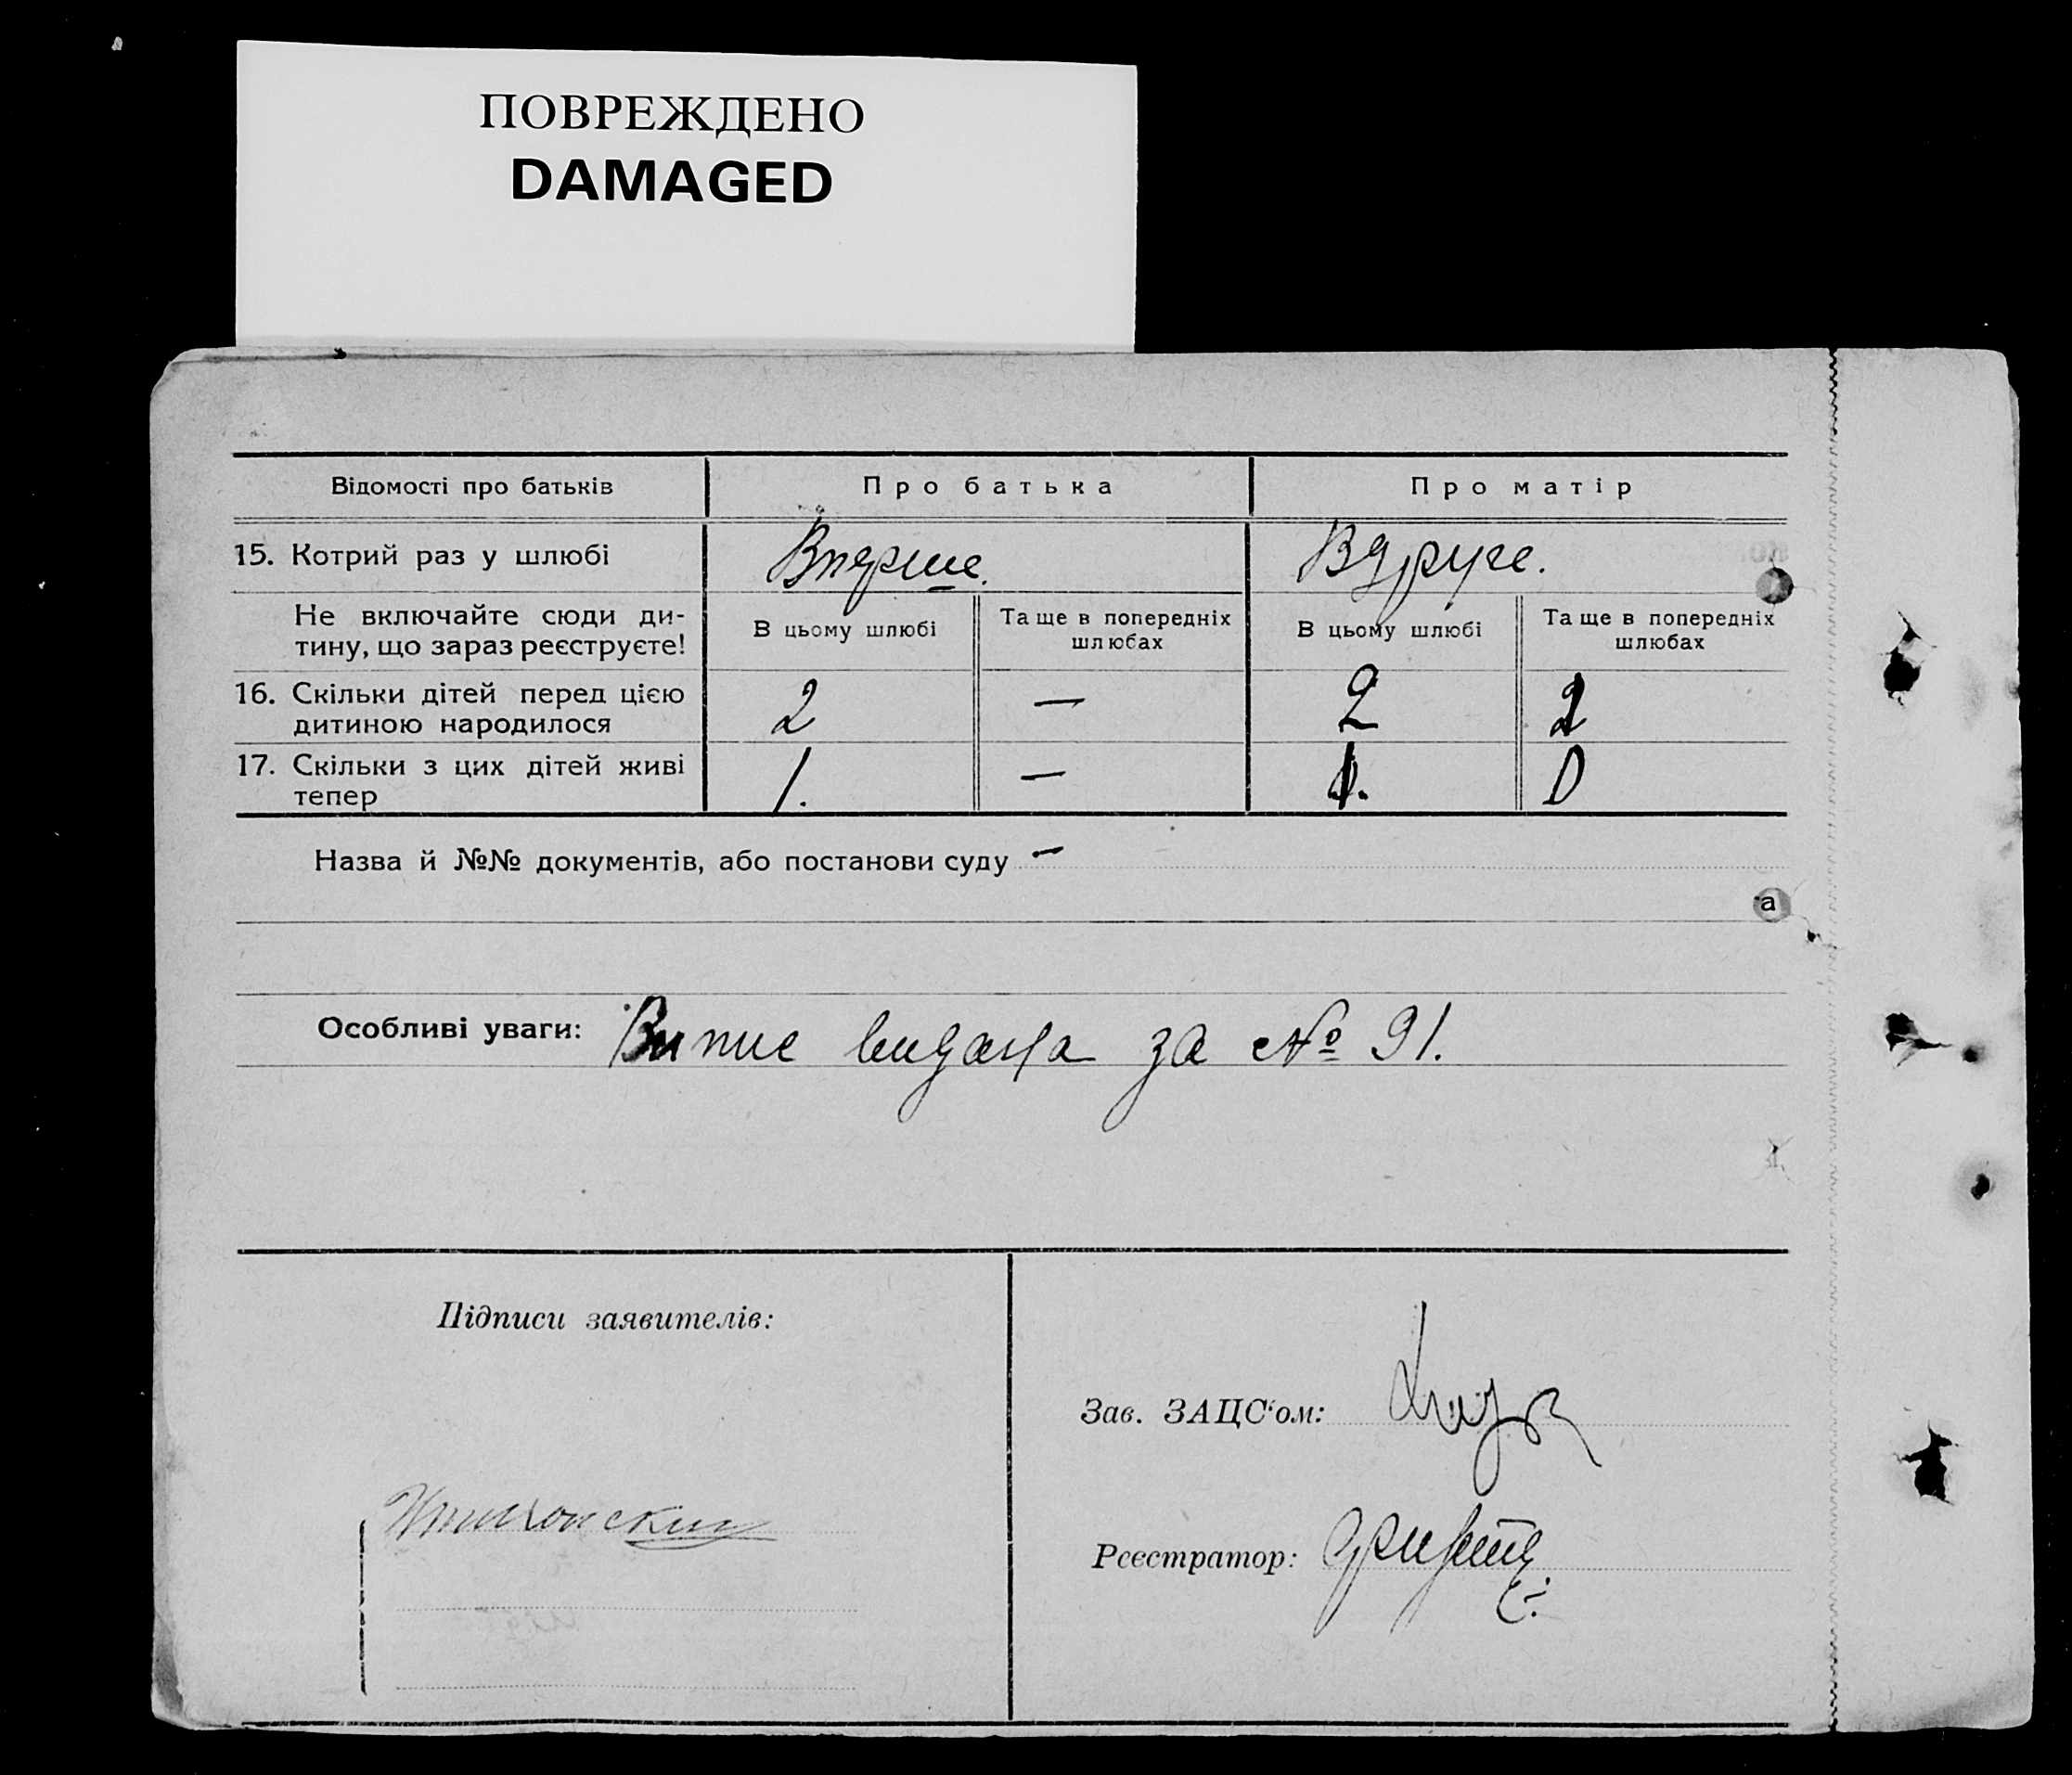 ПОВРЕЖДЕНО
DAMAGED
Відомості про батьків
Про батька
Про матір
15. Котрий раз у шлюбі
Вперше.
Вдруге.
Не включайте сюди ди-
тину, що зараз реєструєте!
В цьому шлюбі
Та ще в попередніх
шлюбах
В цьому шлюбі
Та ще в попередніх
шлюбах
16. Скільки дітей перед цією
дитиною народилося
2
—
2
2
17. Скільки з цих дітей живі
тепер
1.
—
1.
0
Назва й №№ документів, або постанови суду —
а
Особливі уваги: Випис видана за № 91.
Підписи заявителів:
Зав. ЗАЦС‘ом:
Реєстратор: